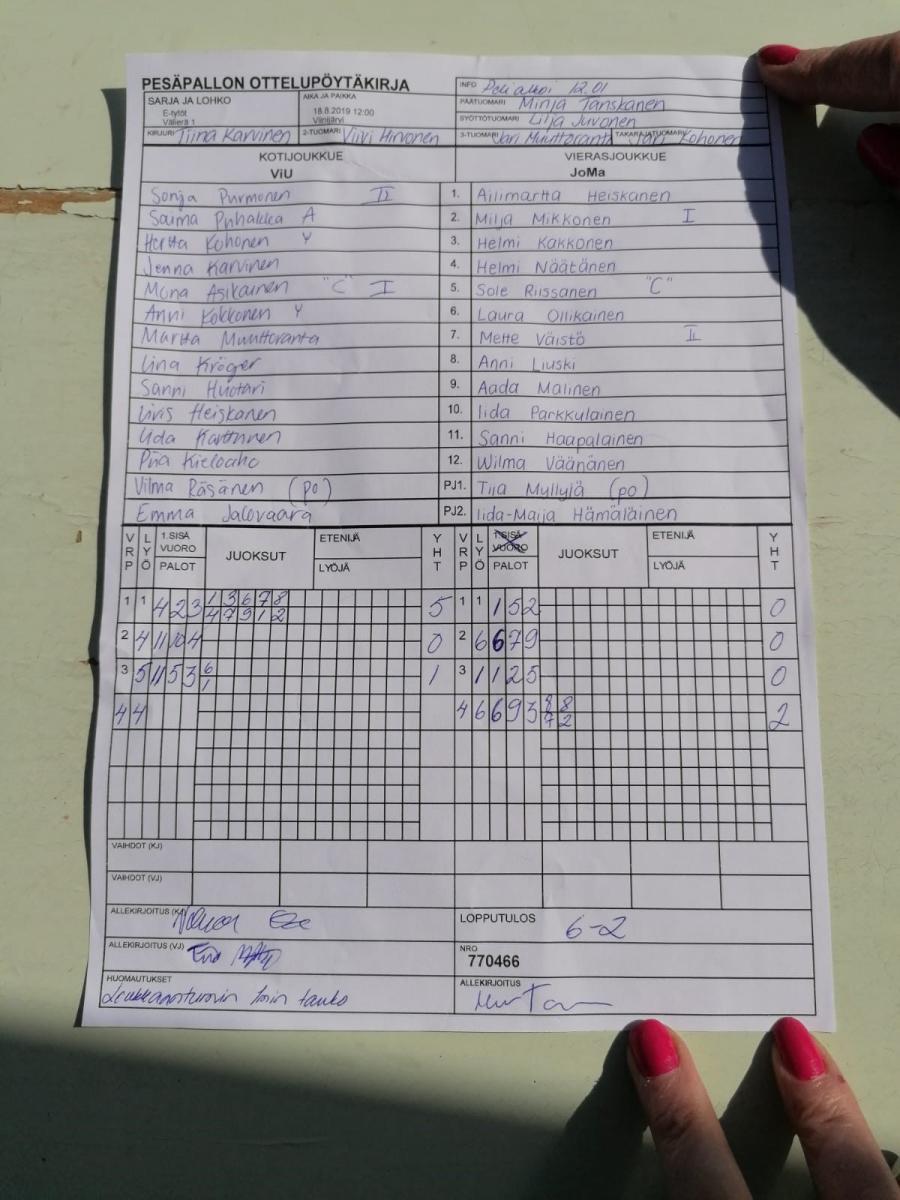 PESÄPALLON OTTELUPÖYTÄKIRJA
INFO Peli alkoi 12.01
SARJA JA LOHKO
E-tytöt
Välierä 1
AIKA JA PAIKKA
18.8.2019 12:00
Viinijärvi
PÄÄTUOMARI Minja Tanskanen
SYÖTTÖTUOMARI Lilja Juvonen
KIRJURI Tiina Karvinen 2-TUOMARI Viivi Hirvonen 3-TUOMARI Jari Muuttoranta TAKARAJATUOMARI Jari Kohonen
KOTIJOUKKUE VIERASJOUKKUE
ViU JoMa
Sonja Purmonen II 1. Ailimartta Heiskanen
Saima Puhakka A 2. Milja Mikkonen I
Hertta Kohonen Y 3. Helmi Kakkonen
Jenna Karvinen 4. Helmi Näätänen
Mona Asikainen "C" I 5. Sole Riissanen "C"
Anni Kokkonen Y 6. Laura Ollikainen
Martta Muuttoranta 7. Mette Väistö II
Lina Kröger 8. Anni Liuski
Sanni Huotari 9. Aada Malinen
Iiris Heiskanen 10. Iida Parkkulainen
Iida Karttunen 11. Sanni Haapalainen
Piia Kieloaho 12. Wilma Väänänen
Vilma Räsänen (po) PJ1. Tiia Myllylä (po)
Emma Jalovaara PJ2. Iida-Maija Hämäläinen
VRP LYÖ 1.SISÄ VUORO PALOT JUOKSUT ETENIJÄ LYÖJÄ YHT VRP LYÖ 1.SISÄ VUORO PALOT JUOKSUT ETENIJÄ LYÖJÄ YHT
1 1 4 2 3 1 3 6 7 8 5 1 1 1 5 2 0
4 7 9 1 2
2 4 11 10 4 0 2 6 6 7 9 0
3 5 11 5 3 6 1 3 1 1 2 5 0
1
4 4 4 6 6 9 3 8 8 2
7 2
VAIHDOT (KJ)
VAIHDOT (VJ)
ALLEKIRJOITUS (KJ) LOPPUTULOS 6-2
ALLEKIRJOITUS (VJ) NRO 770466
HUOMAUTUKSET ALLEKIRJOITUS